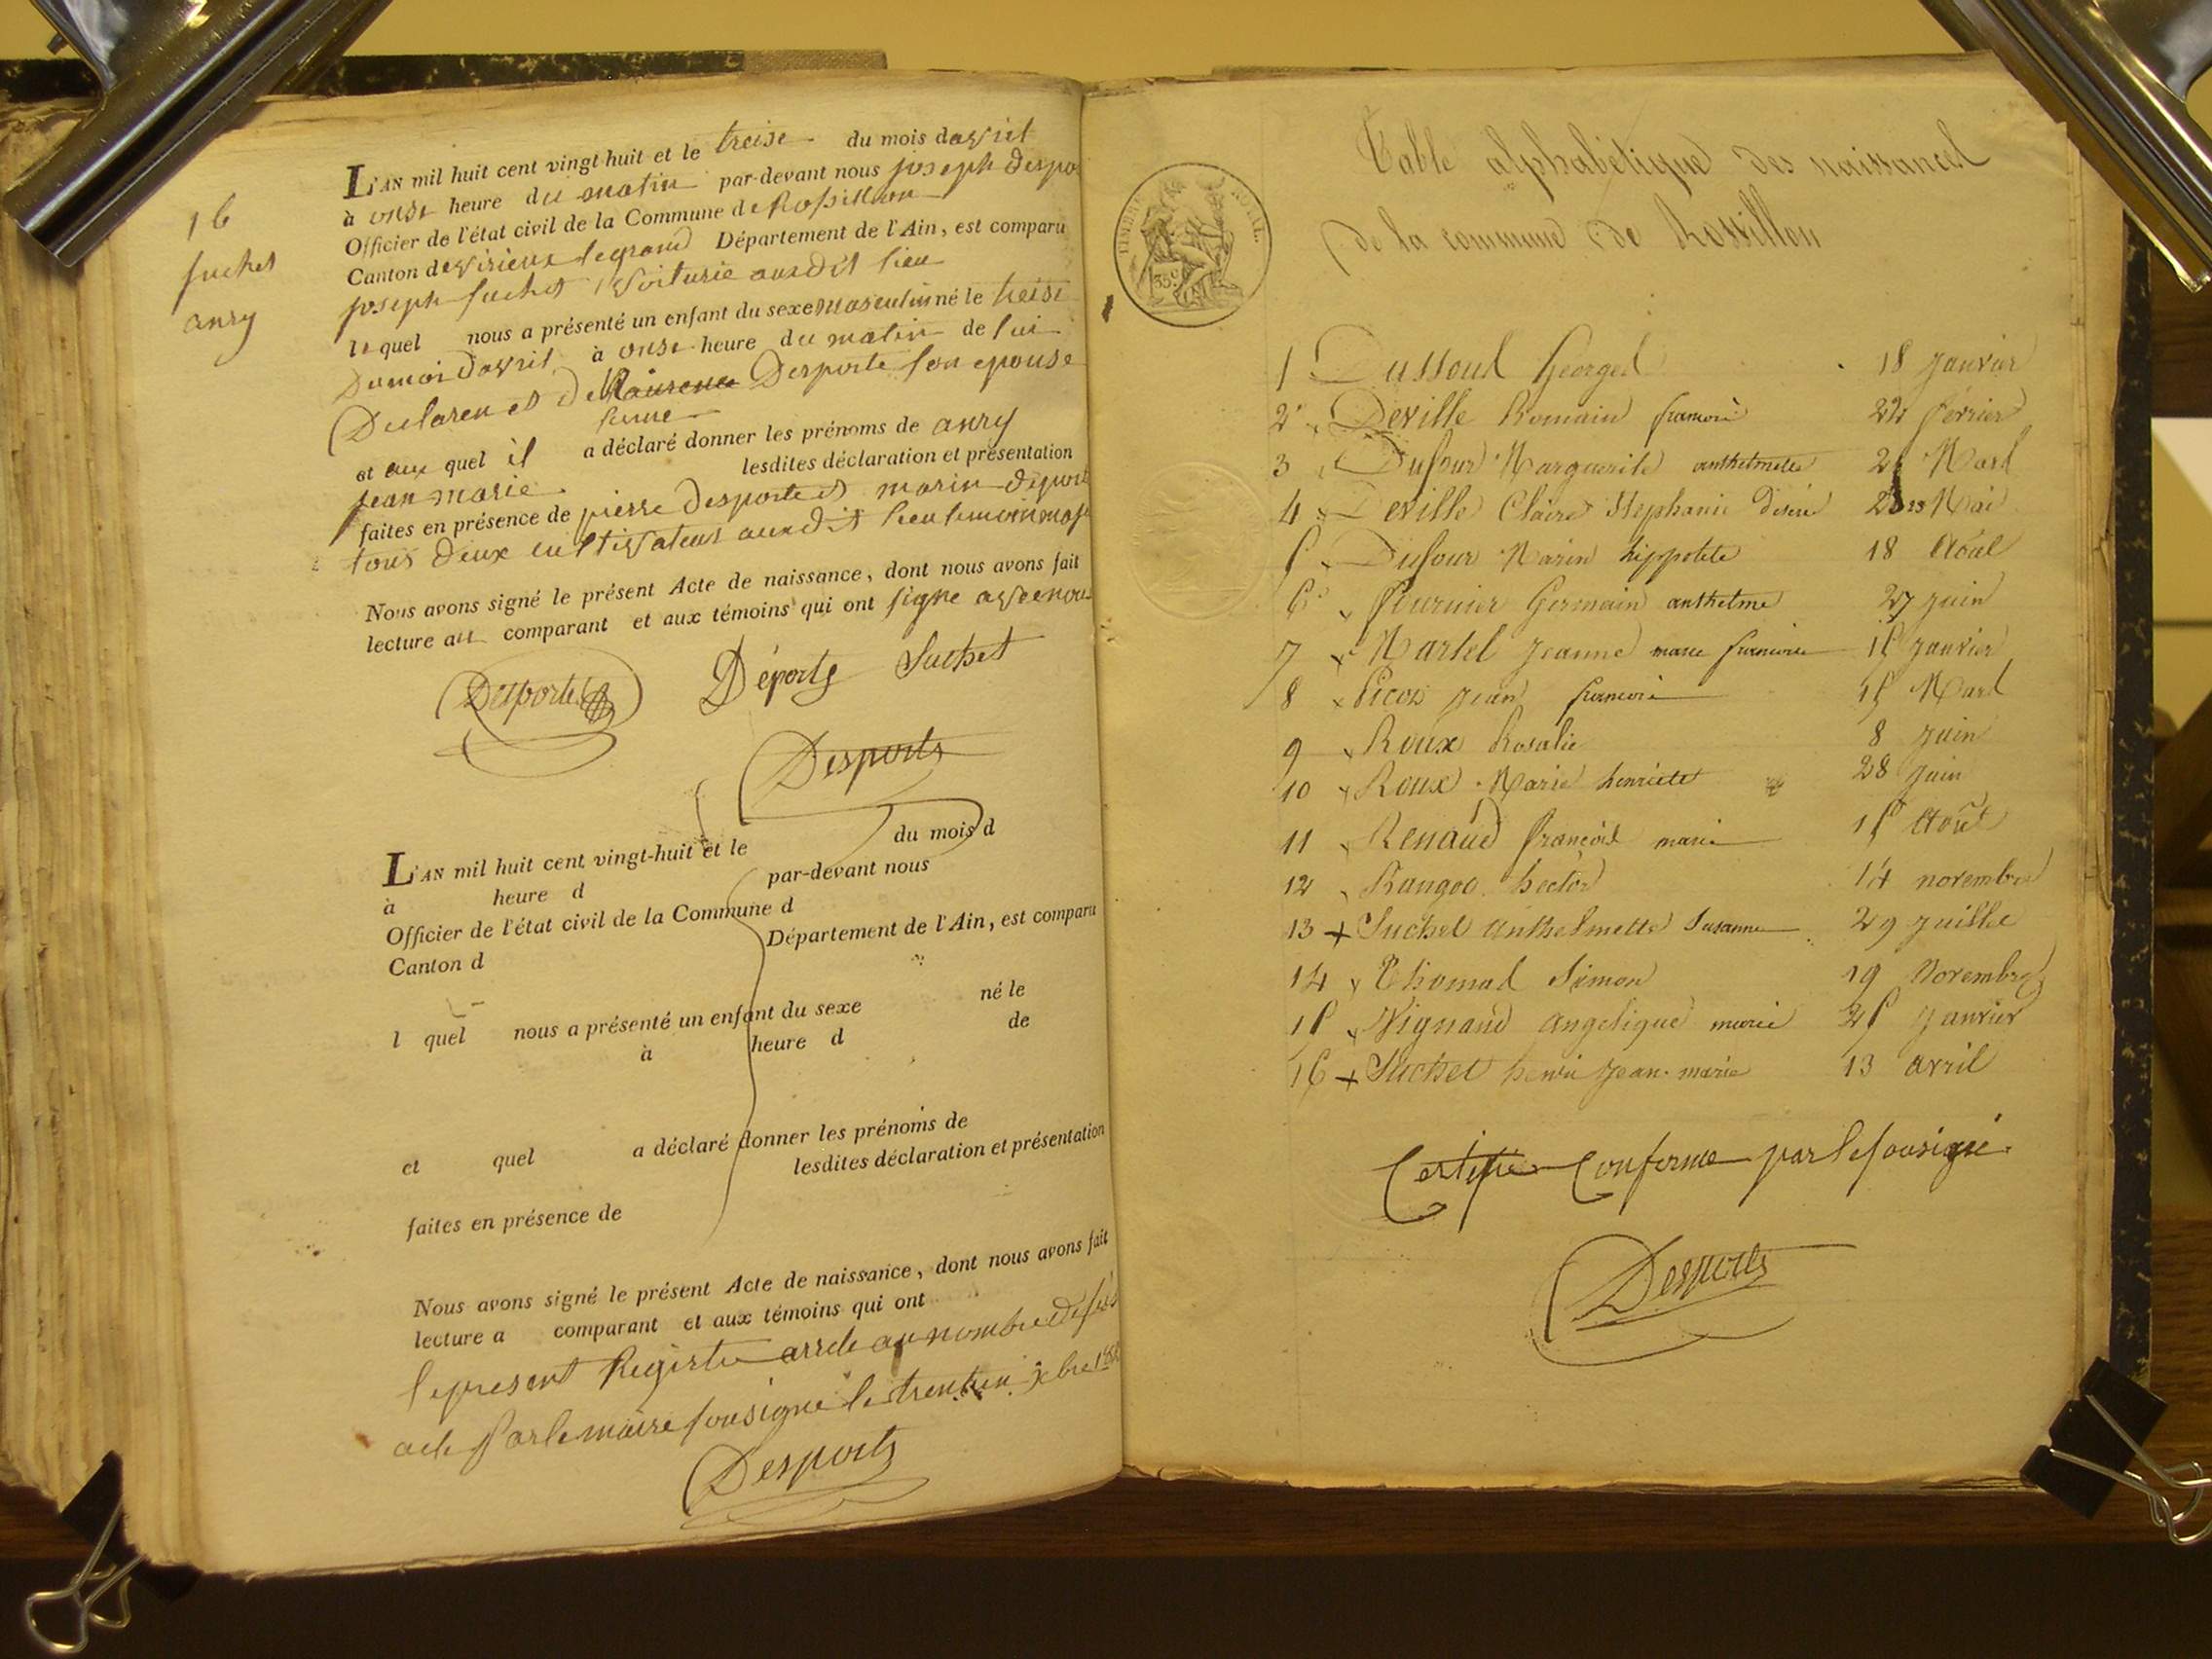 16
suchet
anry
L'AN mil huit cent vingt-huit et le treise du mois davril
à onse heure du matin par-devant nous joseph despor
Officier de l'état civil de la Commune de Rossillon
Canton devirieux legrand Département de l'Ain, est comparu
joseph suchet voiturie audit lieu
lequel nous a présenté un enfant du sexe masculin né le treise
Dumoi davril à onse heure du matin de lui
Declaren et de Desporte son epouse
et aux quel il a déclaré donner les prénoms de anry
jean marie lesdites déclaration et présentation
faites en présence de pierre Desporte et marin deport
tous deux cultivateur audit lieu
Nous avons signé le présent Acte de naissance, dont nous avons fait
lecture au comparant et aux témoins qui ont signe avec nou
Desportes Déports Suchet
Desports
L'AN mil huit cent vingt-huit et le du mois d
à heure d par-devant nous
Officier de l'état civil de la Commune d
Canton d Département de l'Ain, est comparu
l quel nous a présenté un enfant du sexe né le
à heure d de
et quel a déclaré donner les prénoms de
lesdites déclaration et présentation
faites en présence de
Nous avons signé le présent Acte de naissance, dont nous avons fait
lecture a comparant et aux témoins qui ont
le present Registre arrete au nombre de
acte Par le maire sousigne le trentun xbre
Desports
TIMBRE ROYAL
35 c
Table alphabétique des naissances
de la commune de Rossillon
1 Dussoul Georges 18 Janvier
2 Deville Romain francois 22 février
3 Dufour Marguerite anthelmette Mars
4 Deville Claire Stephanie Mai
5 Dufour Marin hippolite 18 Août
6 fournier Germain anthelme 27 juin
7 Martel Jeanne marie francoise 15 Janvier
8 Picot Jean francois 15 Mars
9 Roux Rosalie 8 Juin
10 Roux Marie henriete 28 Juin
11 Renaud françois marie 15 Août
12 hector 14 novembre
13 Suchet anthelmette Susanne 29 Juillet
14 Thomas Simon 19 Novembre
15 Vignand angelique marie 25 Janvier
16 Suchet henri Jean marie 13 avril
Certifie Conforme par le sousigné
Desports